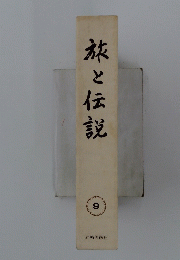 旅と伝説
9